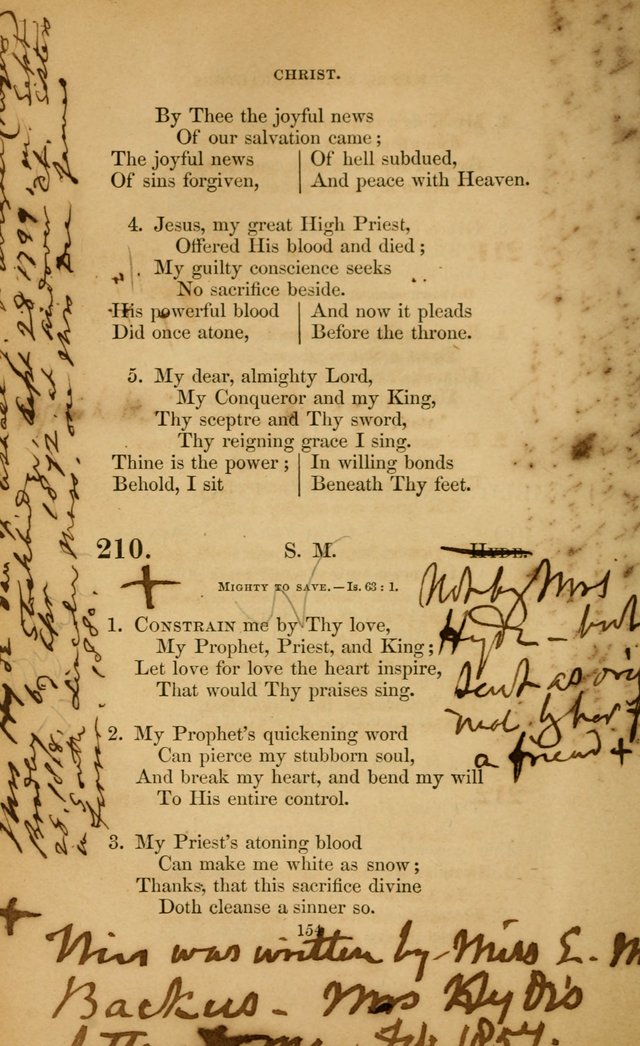 CHRIST.
By Thee the joyful news
Of our salvation came;
The joyful news | Of hell subdued,
Of sins forgiven, | And peace with Heaven.
4. Jesus, my great High Priest,
Offered His blood and died;
My guilty conscience seeks
No sacrifice beside.
His powerful blood | And now it pleads
Did once atone, | Before the throne.
5. My dear, almighty Lord,
My Conqueror and my King,
Thy sceptre and Thy sword,
Thy reigning grace I sing.
Thine is the power; | In willing bonds
Behold, I sit | Beneath Thy feet.
210. S. M. HYDE.
MIGHTY TO SAVE.—IS. 63: 1.
1. CONSTRAIN me by Thy love,
My Prophet, Priest, and King;
Let love for love the heart inspire,
That would Thy praises sing.
2. My Prophet's quickening word
Can pierce my stubborn soul,
And break my heart, and bend my will
To His entire control.
3. My Priest's atoning blood
Can make me white as snow;
Thanks, that this sacrifice divine
Doth cleanse a sinner so.
154
Not by Mrs
Hyde - but
sent as orig
inal by her +
a friend +
Mrs Hyde
Bradley Stockbridge, Sept 28 1799, m. Sept
28. 1818. 1872 at Andover Ct. Sister
in South Lincoln Mass. one Mrs Dee James
1880.
+
+
was written by Miss E. M
Backus - Mrs Hyde's
Feb 1857.